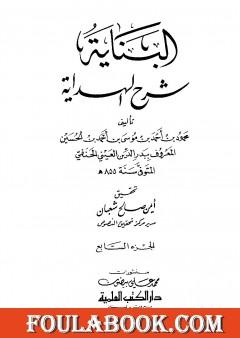 البناية
شرح الهداية
تأليف
محمود بن أحمد بن موسى بن أحمد بن الحسين
المعروف ببدر الدين العيني الحنفي
المتوفى سنة ٨٥٥ هـ
تحقيق
أيمن صالح شعبان
الجزء السابع
منشورات
محمد علي بيضون
دار الكتب العلمية
FOULABOOK.COM